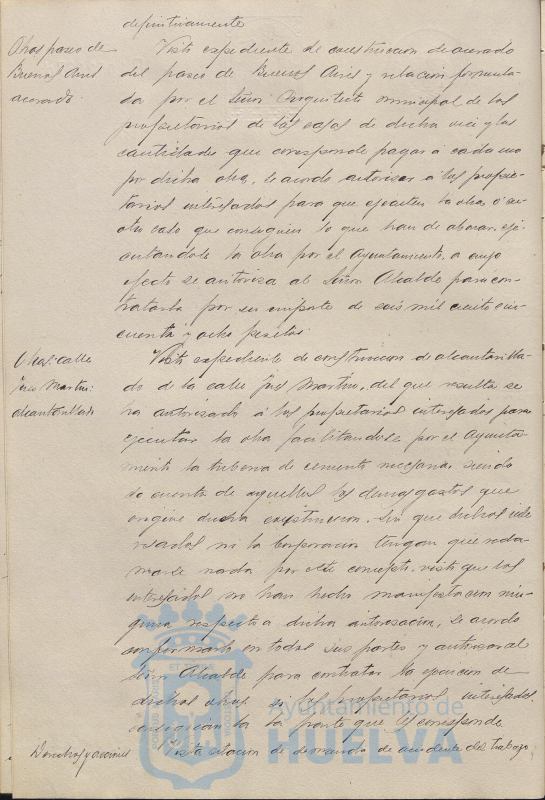 definitivamente
Obras paseo de
Buenos Aires
acerado.
Visto expediente de construccion de acerado
del paseo de Buenos Aires y relación formula-
da por el Señor Arquitecto municipal de los
propietarios de las casas de dicha via y las
cantidades que corresponde pagar á cada uno
por dicha obra, se acordó autorizar á los propie-
tarios interesados para que ejecuten la obra, ó en
otro caso que consignen lo que han de abonar, eje-
cutandose la obra por el Ayuntamiento, a cuyo
efecto se autoriza al Señor Alcalde para con-
tratarla por su importe de seis mil ciento cin-
cuenta y ocho pesetas.
Obras: calle
José Martin:
alcantarillado
Visto expediente de construccion de alcantarilla-
do de la calle José Martin, del que resulta se
ha autorizado á los propietarios interesados para
ejecutar la obra facilitandose por el Ayunta-
miento la tuberia de cemento necesaria, siendo
de cuenta de aquellos los demas gastos que
origine dicha construccion, sin que dichos inte-
resados ni la Corporacion tengan que recla-
marse nada por este concepto, visto que los
interesados no han hecho manifestacion nin-
guna respecto a dicha autorizacion, se acordó
conformarlo en todas sus partes y autorizar al
Señor Alcalde para contratar la ejecucion de
dichas obras si los propietarios interesados
consignan la parte que les corresponde
Derechos y acciones
Vista citacion de demanda de accidente del trabajo,
Ayuntamiento de
HUELVA